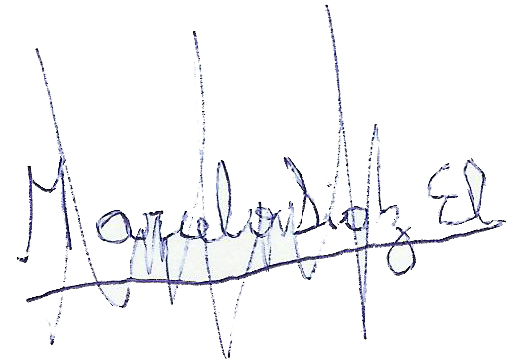 Marcelo Díaz El